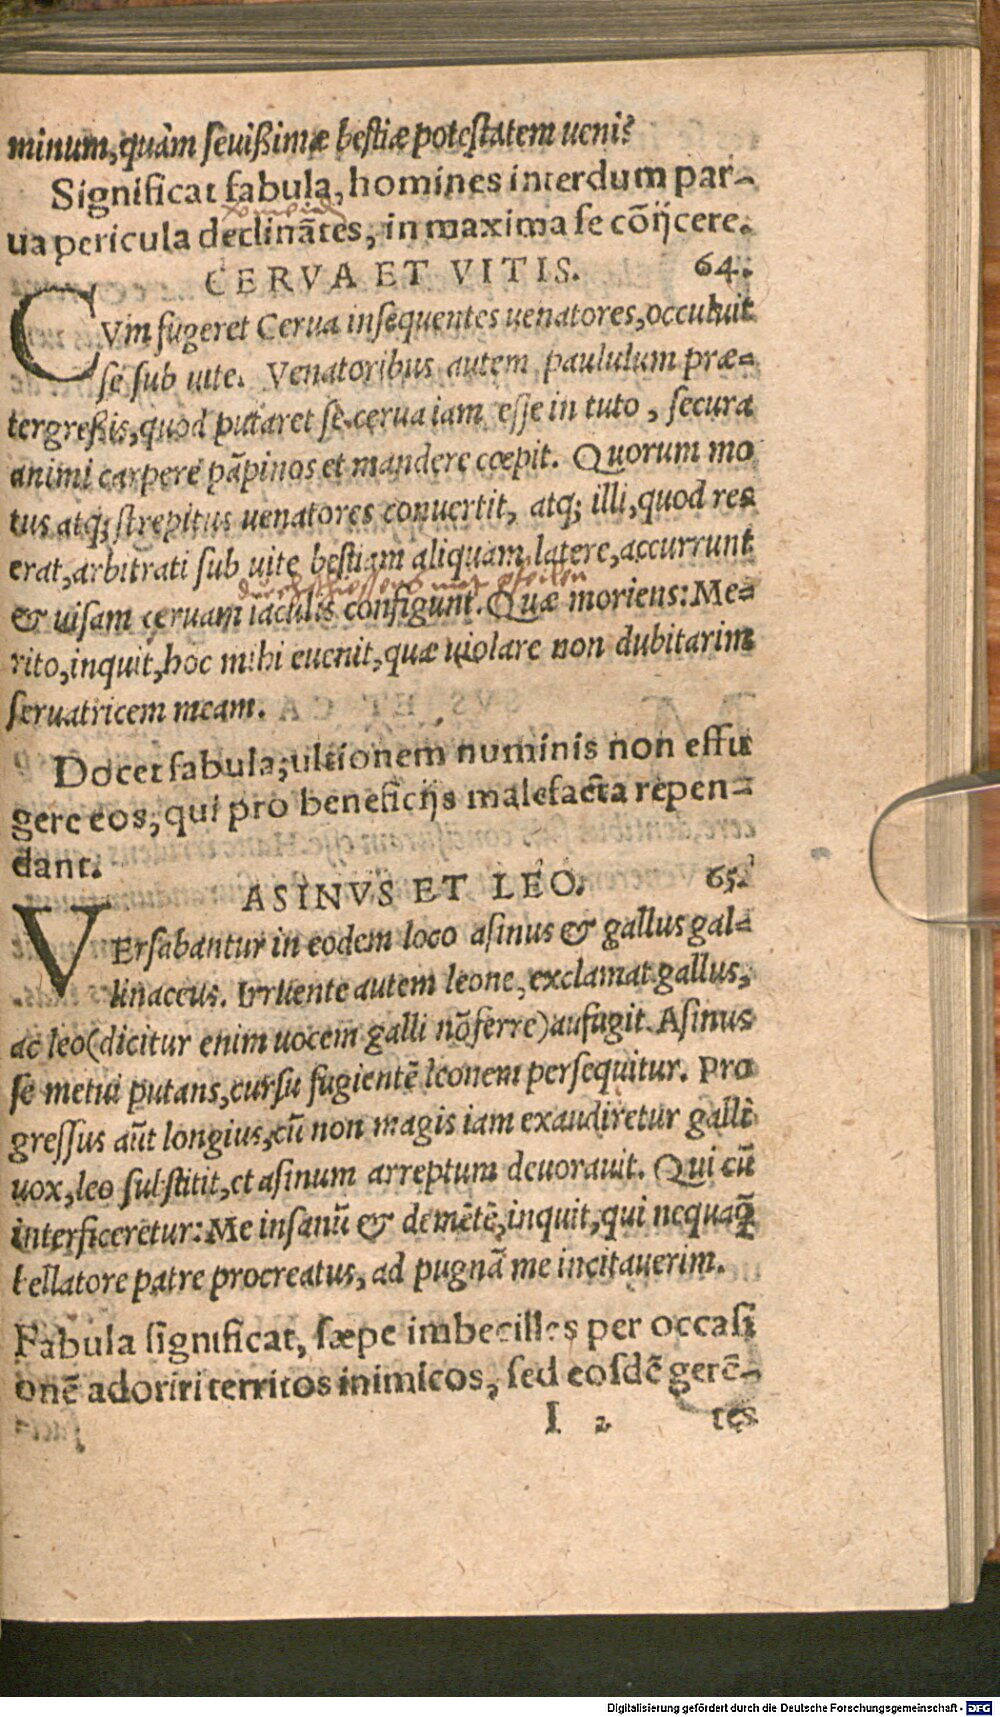 minum, quàm seuißimæ bestiæ potestatem ueni?
Significat fabula, homines interdum par-
ua pericula declinātes, in maxima se cōijcere.
CERVA ET VITIS. 64.
CVm fugeret Cerua insequentes uenatores, occuluit
se sub uite. Venatoribus autem paululum præ-
tergreßis, quod putaret se cerua iam esse in tuto, secura
animi carpere pāpinos et mandere cœpit. Quorum mo
tus atq; strepitus uenatores conuertit, atq; illi, quod res
erat, arbitrati sub uite bestiam aliquam latere, accurrunt
& uisam ceruam iaculis configunt. Quæ moriens: Me-
rito, inquit, hoc mihi euenit, quæ uiolare non dubitarim
seruatricem meam.
Docet fabula, ultionem numinis non effu
gere eos, qui pro beneficijs malefacta repen-
dant.
ASINVS ET LEO. 65.
VErsabantur in eodem loco asinus & gallus gal-
linaceus. Irruente autem leone, exclamat gallus,
ac leo (dicitur enim uocem galli nō ferre) aufugit. Asinus
se metui putans, cursu fugientē leonem persequitur. Pro
gressus aūt longius, cū non magis iam exaudiretur galli
uox, leo substitit, et asinum arreptum deuorauit. Qui cū
interficeretur: Me insanū & demētē, inquit, qui nequaq̄
bellatore patre procreatus, ad pugnā me incitauerim.
Fabula significat, sæpe imbecilles per occasi
onē adoriri territos inimicos, sed eosdē gerē-
I 2 tes
Digitalisierung gefördert durch die Deutsche Forschungsgemeinschaft - DFG